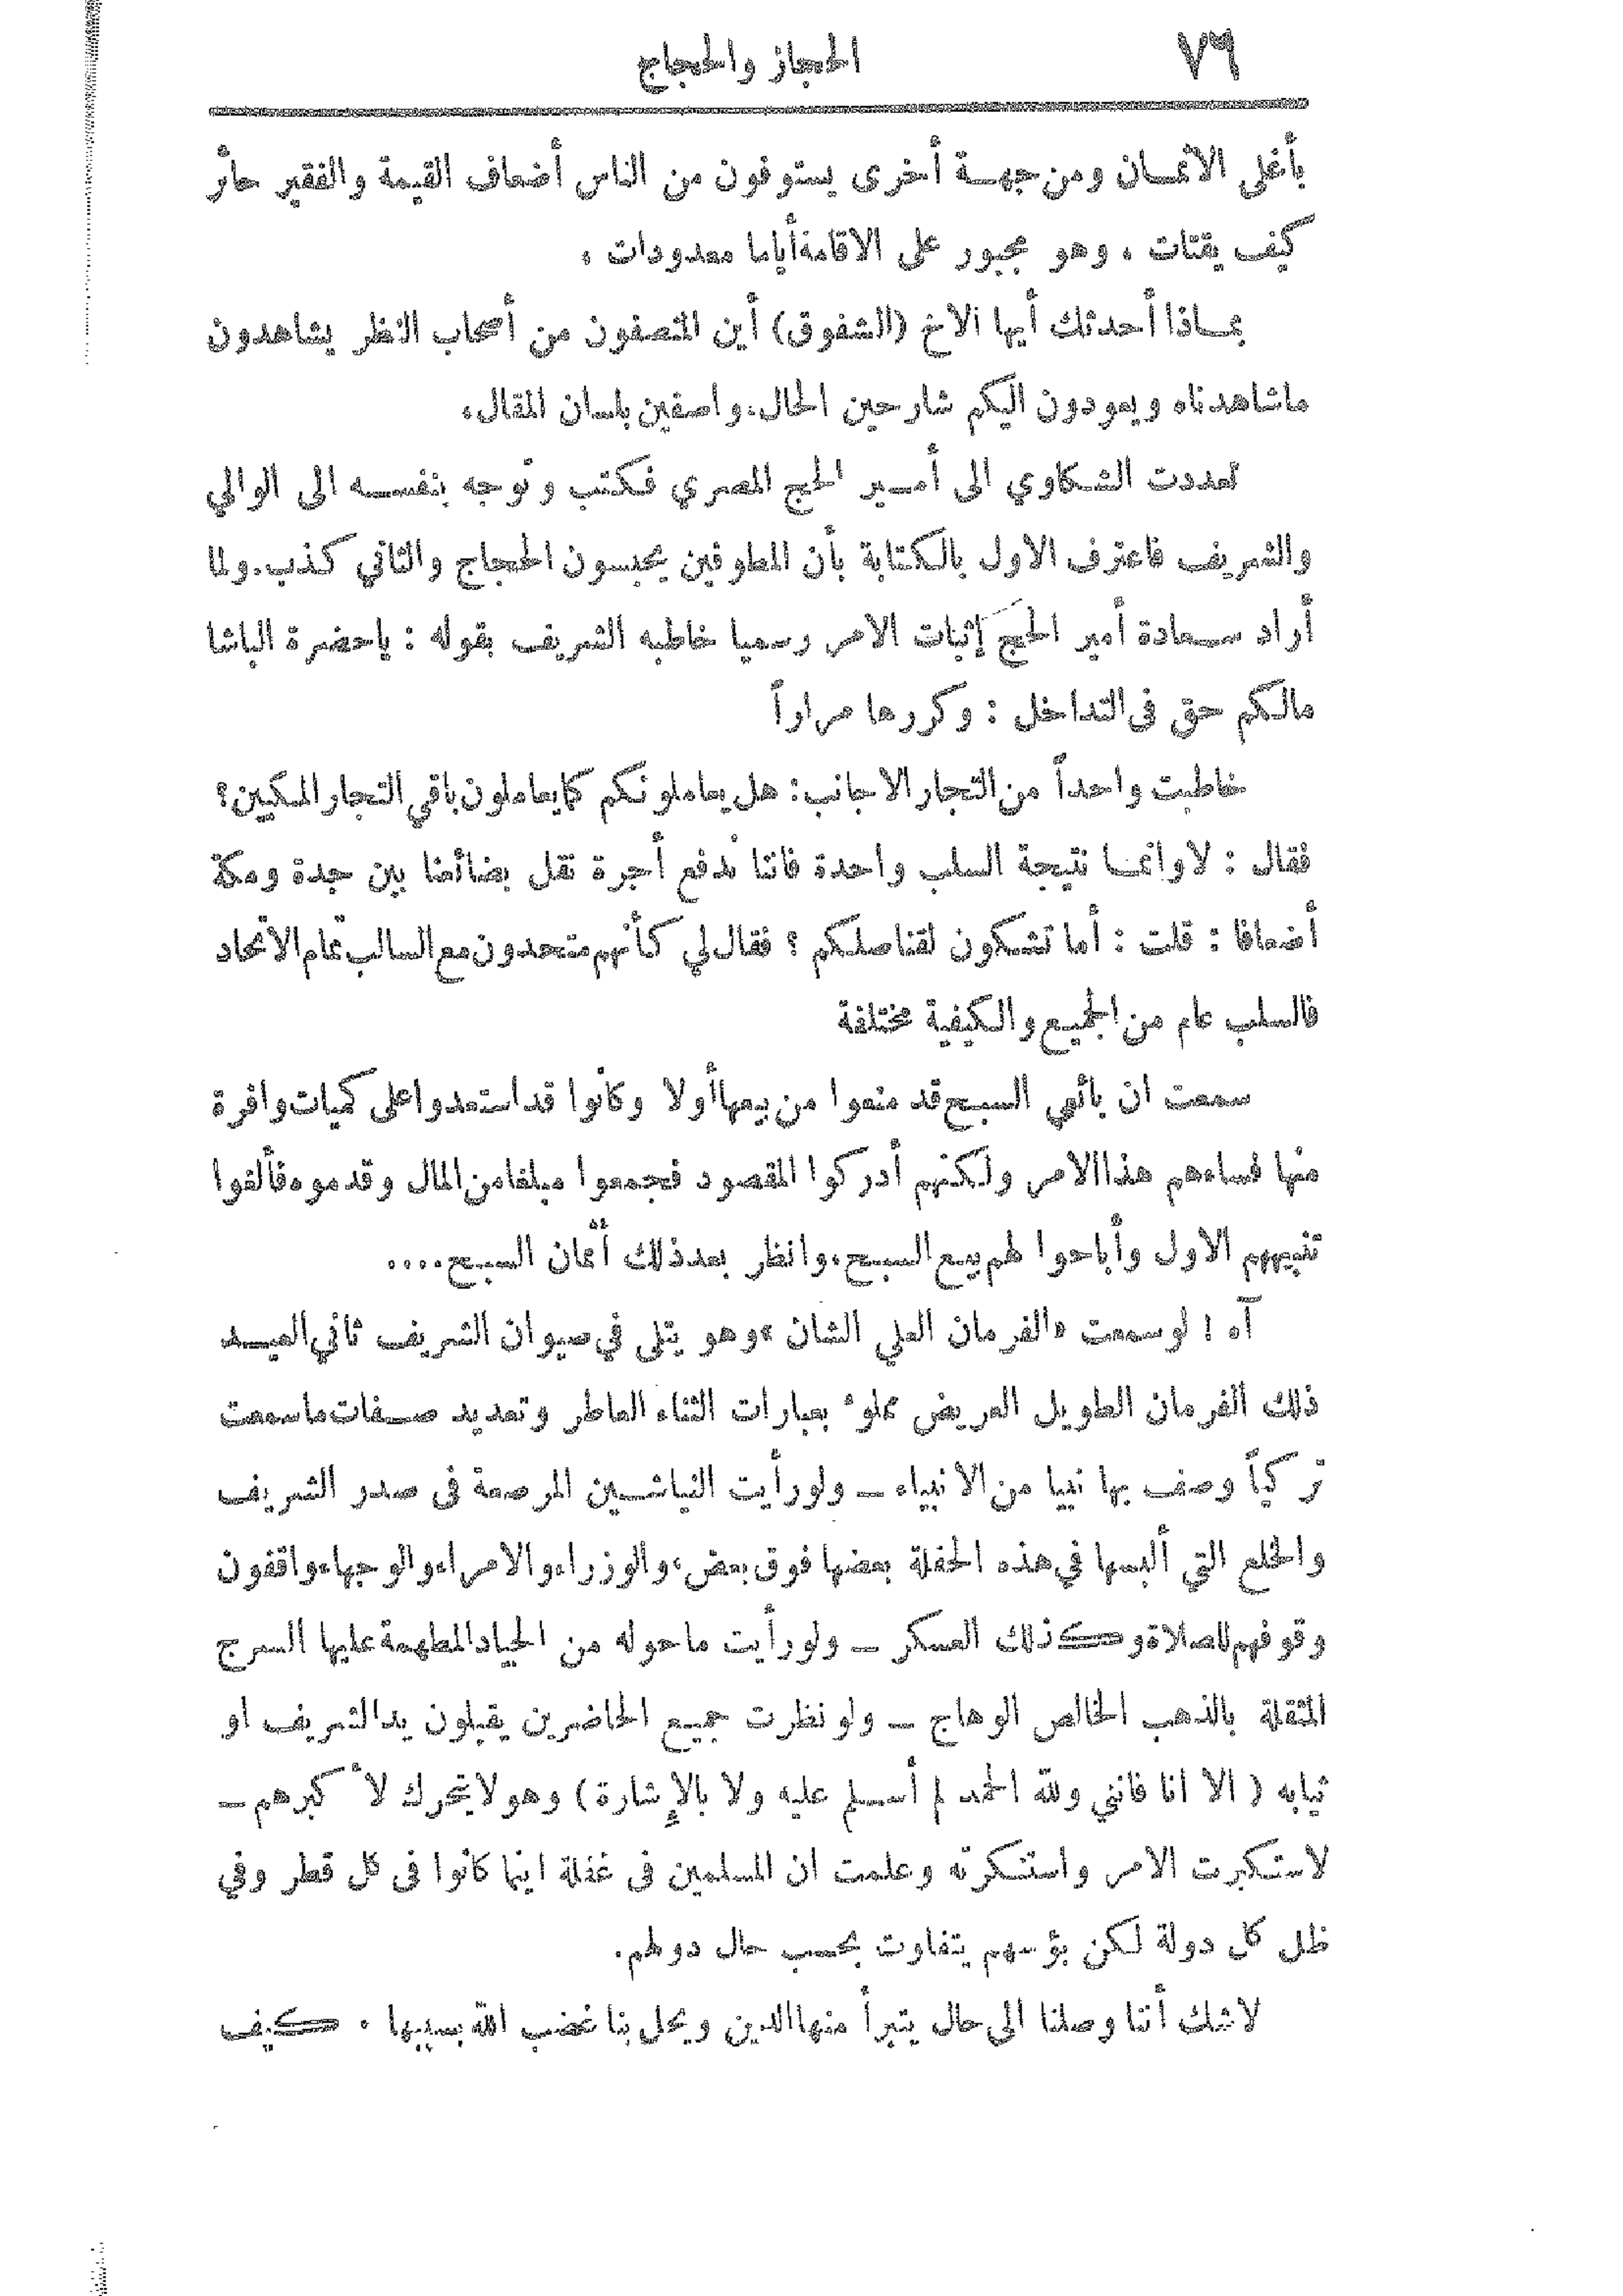 ٧٦ الحجاز والحجاج
بأغلى الاثمان ومن جهة أخرى يستوفون من الناس أضعاف القيمة والفقير حائر
كيف يقتات ، وهو مجبور على الاقامة أياما معدودات ،
بماذا أحدثك أيها الاخ (الشفوق) أين المنصفون من أصحاب النظر يشاهدون
ماشاهدناه ويعودون اليكم شارحين الحال، واصفين بلسان المقال،
تعددت الشكاوي الى أمير الحج المصري فكتب وتوجه بنفسه الى الوالي
والشريف فاعترف الاول بالكتابة بأن المطوفين يحبسون الحجاج والثاني كذب. ولما
أراد سعادة أمير الحج إثبات الامر رسميا خاطبه الشريف بقوله : ياحضرة الباشا
مالكم حق فى التداخل : وكررها مراراً
خاطبت واحداً من التجار الاجانب: هل يعاملونكم كما يعاملون باقي التجار المكيين؟
فقال : لا وانما نتيجة السلب واحدة فاننا ندفع أجرة نقل بضائعنا بين جدة ومكة
أضعافا : قلت : أما تشكون لقناصلكم ؟ فقال لي كأنهم متحدون مع السالب تمام الاتحاد
فالسلب عام من الجميع والكيفية مختلفة
سمعت ان بائعي السبح قد منعوا من بيعها أولا وكانوا قد استعدوا على كميات وافرة
منها فساءهم هذا الامر ولكنهم أدركوا المقصود فجمعوا مبلغا من المال وقدموه فألغوا
تنبيههم الاول وأباحوا لهم بيع السبح، وانظر بعد ذلك أثمان السبح....
آه ! لو سمعت «الفرمان العلي الشان» وهو يتلى في صيوان الشريف ثاني العيد
ذلك الفرمان الطويل العريض مملوء بعبارات الثناء العاطر وتعديد صفات ما سمعت
تركياً وصف بها نبيا من الانبياء ــ ولو رأيت النياشين المرصعة فى صدر الشريف
والخلع التي ألبسها في هذه الحفلة بعضها فوق بعض، والوزراء والامراء والوجهاء واقفون
وقوفهم للصلاة وكذلك العسكر ــ ولو رأيت ما حوله من الجياد المطهمة عليها السرج
المثقلة بالذهب الخالص الوهاج ــ ولو نظرت جميع الحاضرين يقبلون يد الشريف او
ثيابه ( الا انا فانني ولله الحمد لم أسلم عليه ولا بالإشارة ) وهو لا يتحرك لأكبرهم ــ
لاستكبرت الامر واستنكرته وعلمت ان المسلمين فى غفلة اينما كانوا فى كل قطر وفي
ظل كل دولة لكن بؤسهم يتفاوت بحسب حال دولهم.
لاشك أننا وصلنا الى حال يتبرأ منها الدين ويحل بنا غضب الله بسببها ، كيف